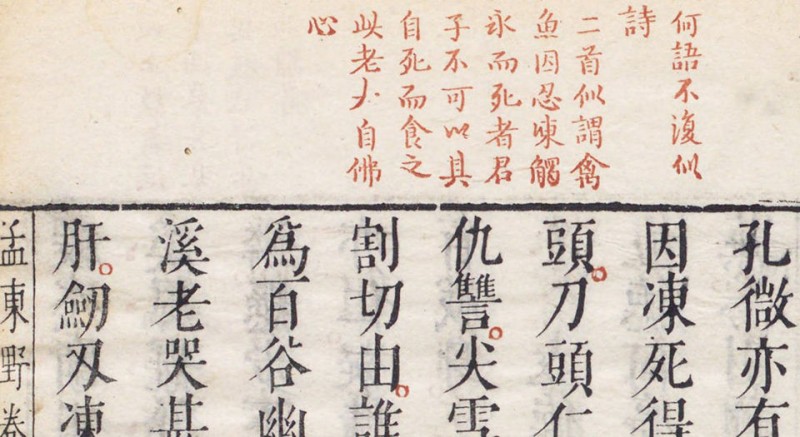 何語不復似
詩
二首似謂禽
魚因忍凍觸
氷而死者君
子不可以具
自死而食之
此老大自佛
心
孔微亦有
因凍死得
頭。刀頭仁
仇讐。尖雪
割切由。誰
爲百谷幽
溪老哭甚
肝。劒刃凍
孟東野卷